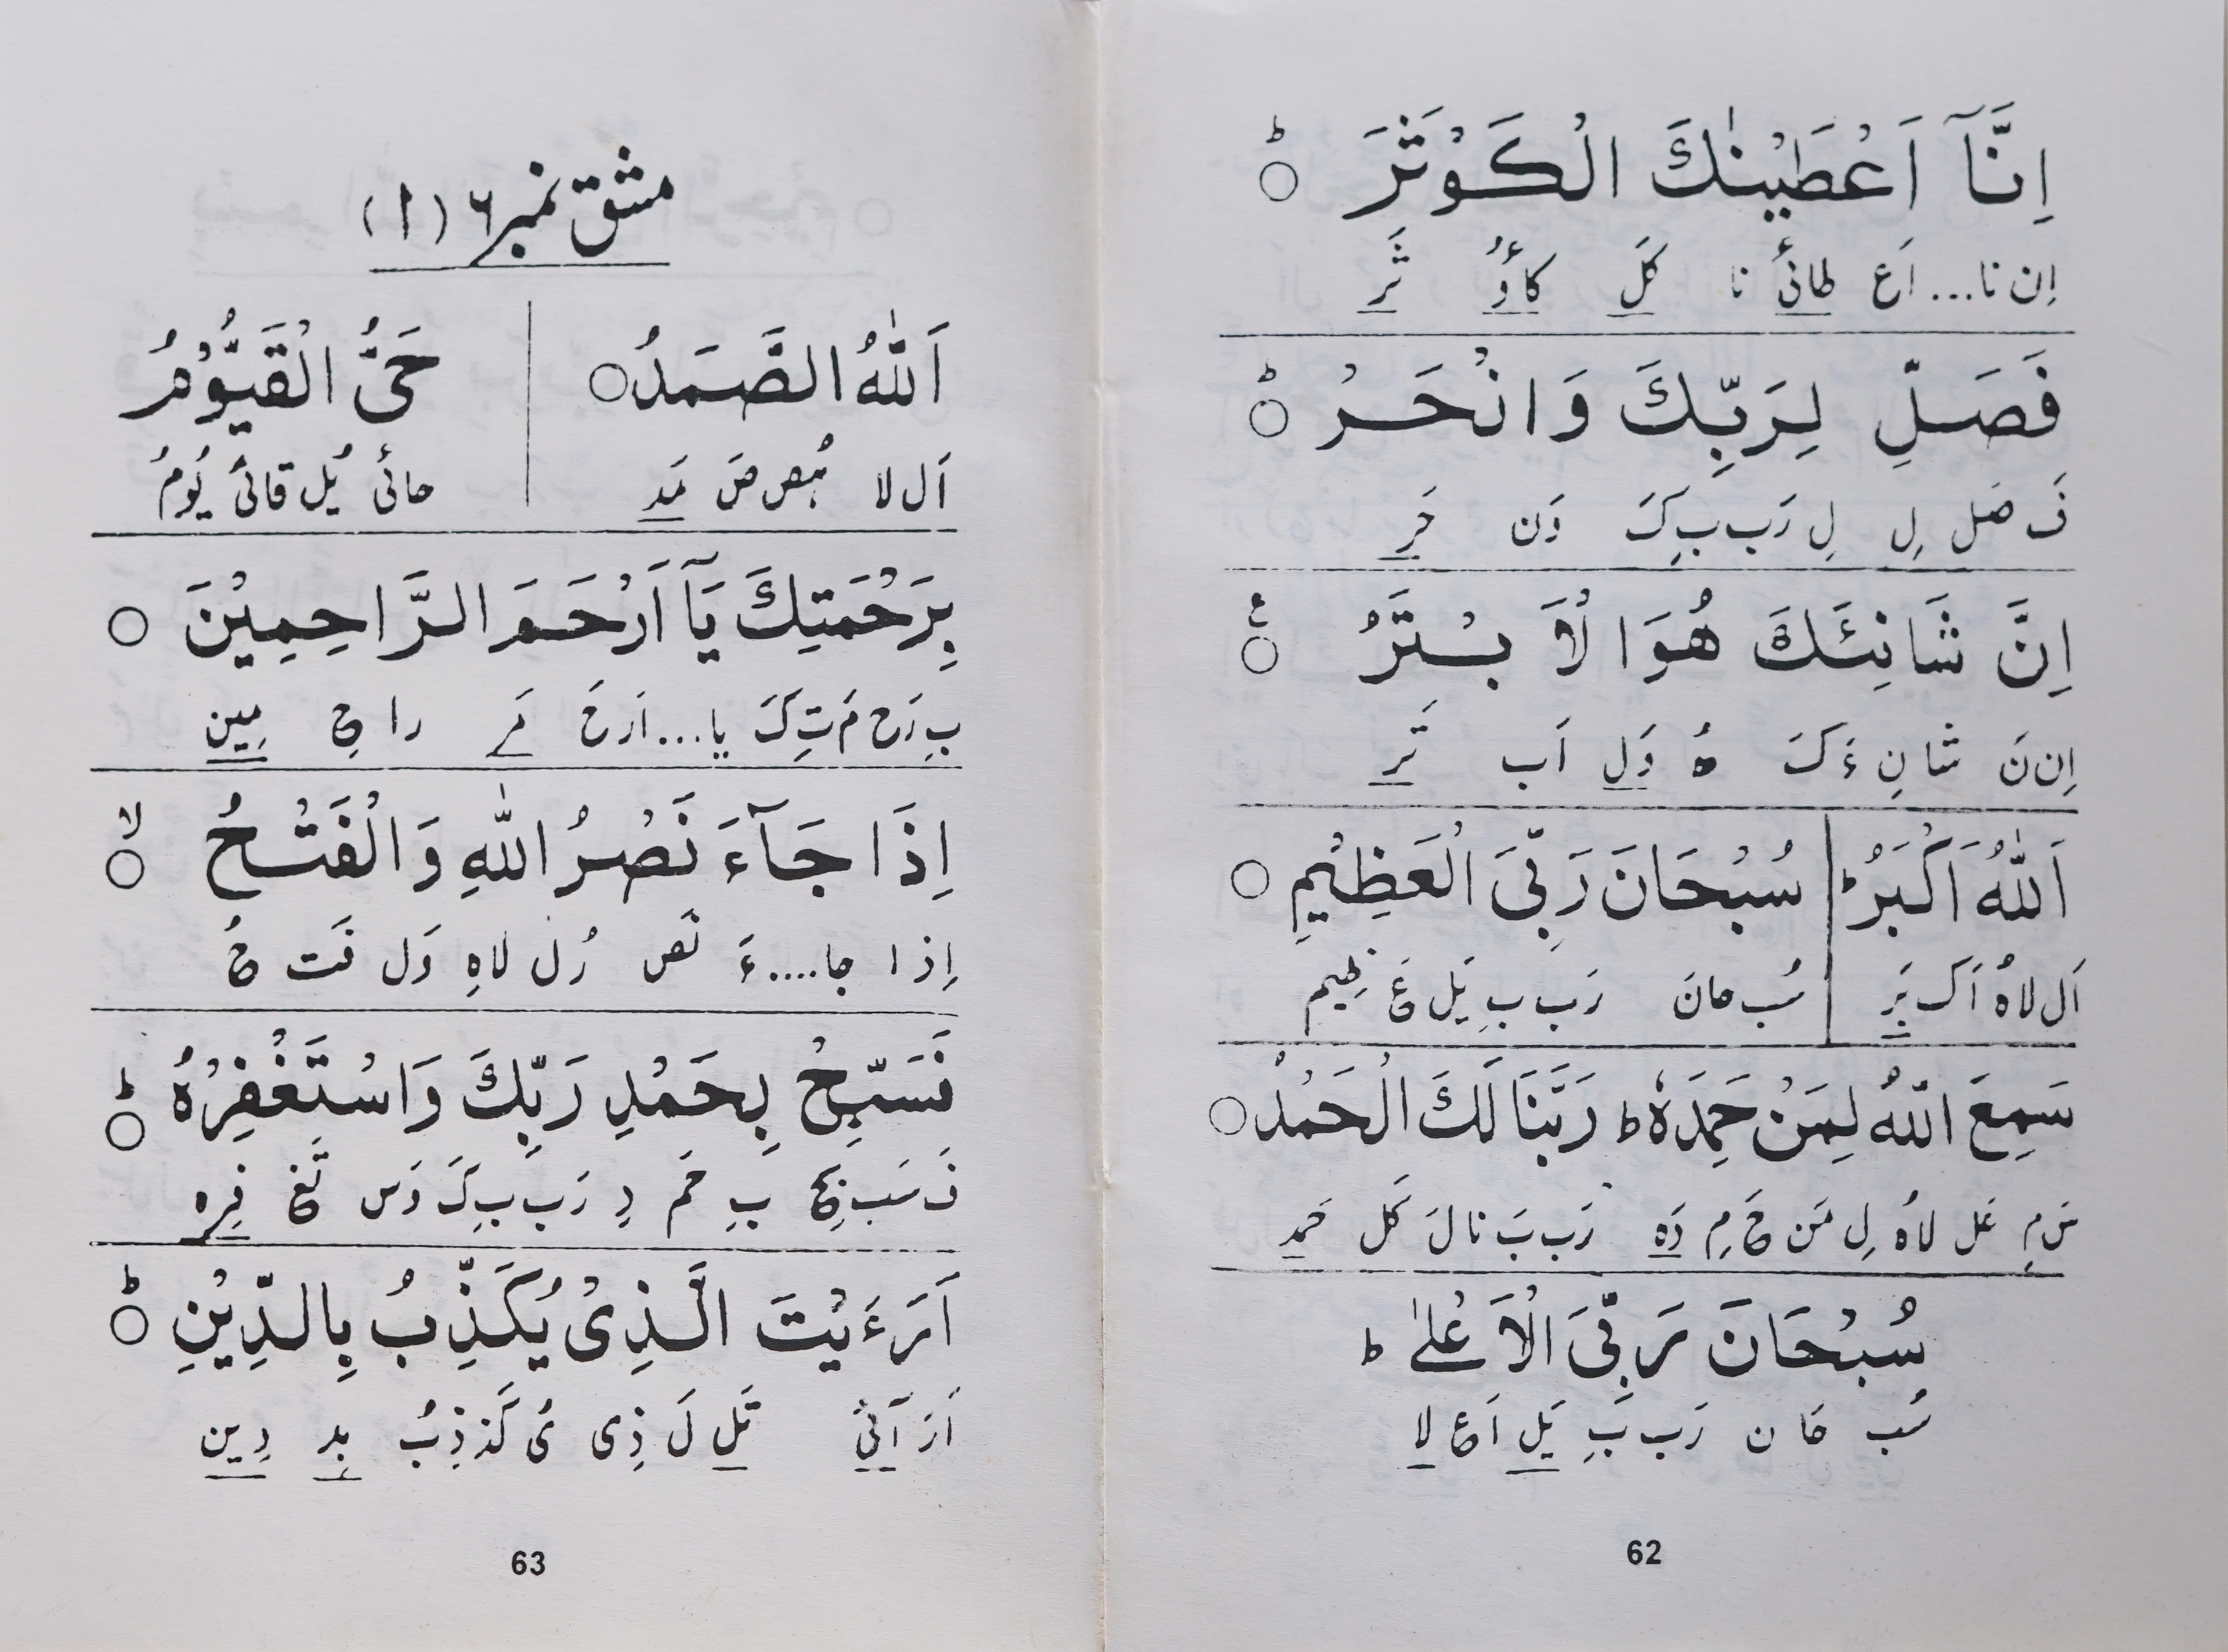 اِنَّآ اَعْطَیْنٰكَ الْكَوْثَرَ ○ؕ
اِن نا... اَع طائ نا كَلَ كاؤ ثَر
فَصَلِّ لِرَبِّكَ وَانْحَرْ ○ؕ
فَ صَل لِ لِ رَب بِ كَ وَن حَر
اِنَّ شَانِئَكَ هُوَا لْاَ بْسَتَرُ ○ۧ
اِن نَ شا نِ ءَ كَ هُ وَل اَب تَر
اَللّٰهُ اَكْبَرُ ؕ | سُبْحَانَ رَبِّیَ الْعَظِیْمِ ○
اَل لاهُ اَك بَر | سُب حانَ رَب بِ یَل عَ ظِیم
سَمِعَ اللّٰهُ لِمَنْ حَمِدَهٗ ؕ رَبَّنَا لَكَ الْحَمْدُ ○
سَ مِ عَل لاهُ لِ مَن حَ مِ دَه رَب بَ نا لَ كَل حَمد
سُبْحَانَ رَبِّیَ الْاَعْلٰے ؕ
سُب حَا ن رَب بِ یَل اَع لا
62
مشق نمبر ۶ (۱)
اَللّٰهُ الصَّمَدُ ○ | حَیُّ الْقَیُّوْمُ
اَل لا هُص صَ مَد | حائ یُل قائ یُومُ
بِرَحْمَتِكَ یَآ اَرْحَمَ الرَّاحِمِیْنَ ○
بِ رَح مَ تِ كَ یا... اَرحَ مَر را حِ مِین
اِذَا جَآءَ نَصْرُ اللّٰهِ وَالْفَتْحُ ○ۙ
اِذا جا....ءَ نَص رُل لاهِ وَل فَت حُ
فَسَبِّحْ بِحَمْدِ رَبِّكَ وَاسْتَغْفِرْهُ ○ؕ
فَ سَب بِح بِ حَم دِ رَب بِ كَ وَس تَغ فِره
اَرَءَیْتَ الَّذِیْ یُكَذِّبُ بِالدِّیْنِ ○ؕ
اَرَ آئ تَل لَ ذِی یُ كَذ ذِبُ بِد دِین
63